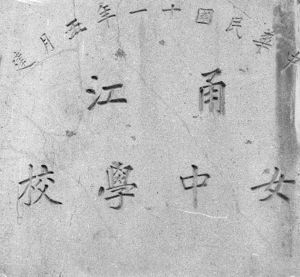 中華民國十一年五月建
甬江
女中學校